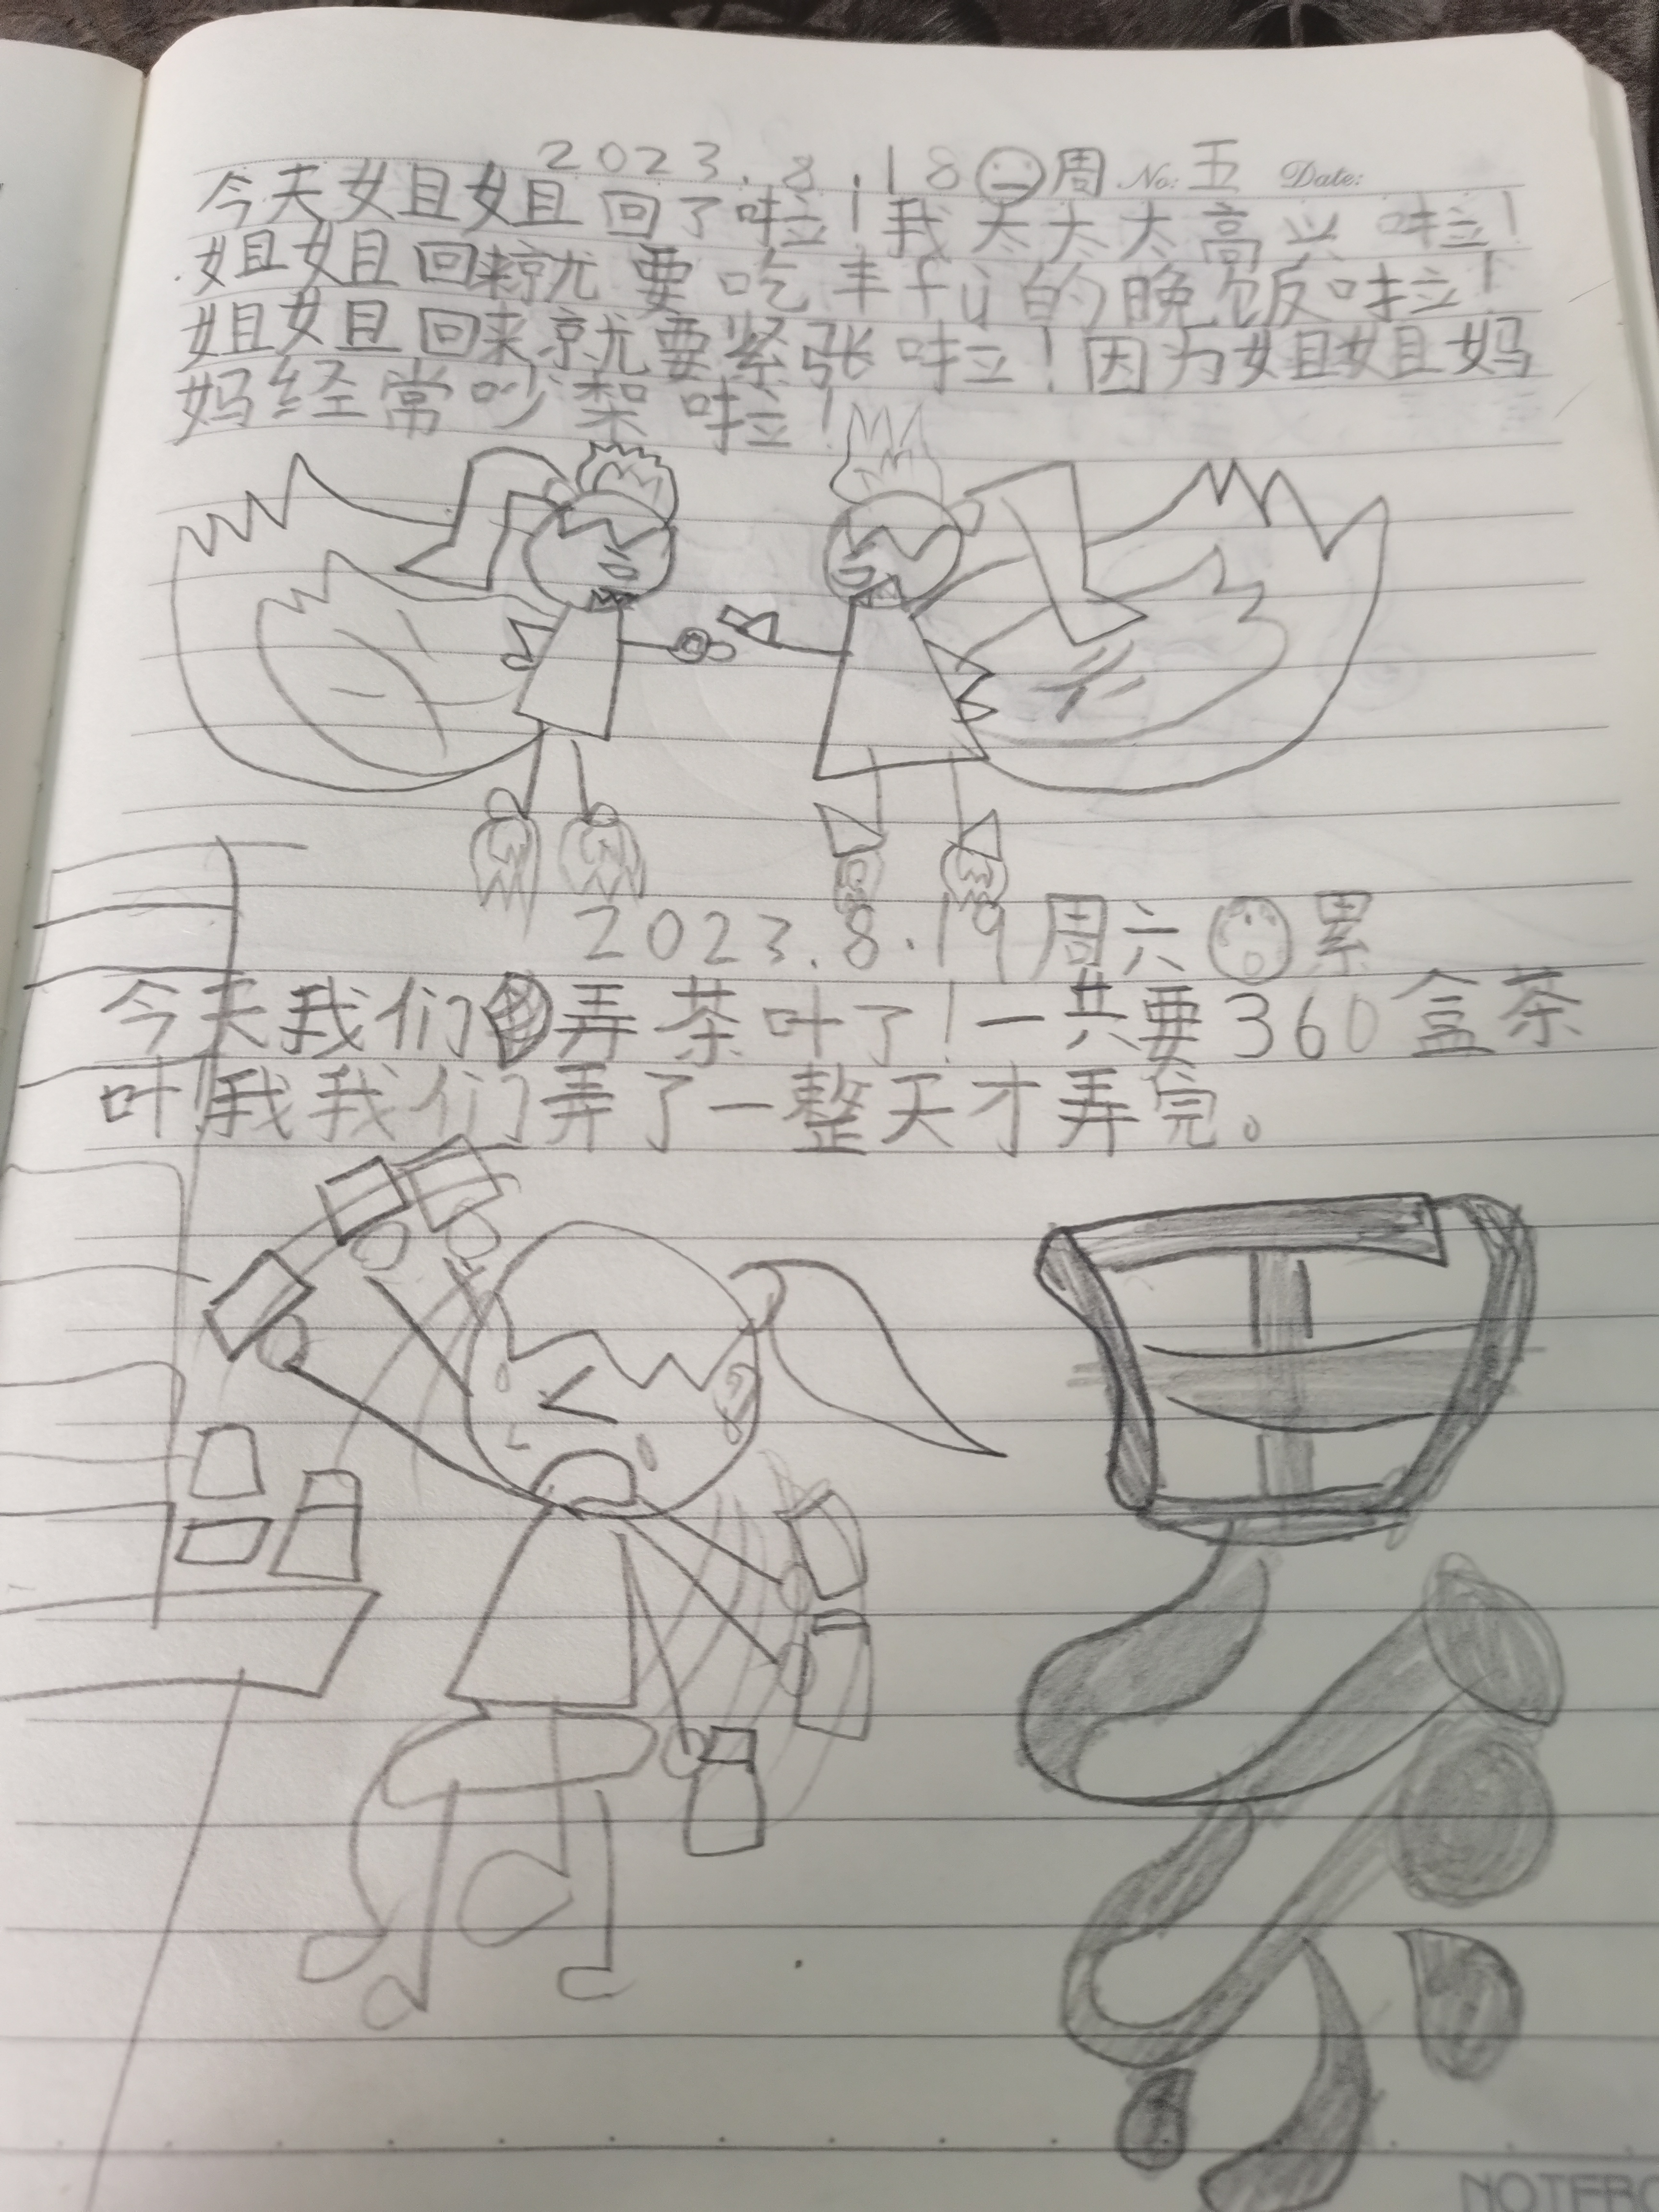 2023.8.18 周 No: 五 Date:
今天姐姐回了啦！我太太太高兴啦！
姐姐回来就要吃丰fù的晚饭啦！
姐姐回来就要紧张啦！因为姐姐妈
妈经常吵架啦！
2023.8.19 周六 累
今天我们弄茶叶了！一共要360盒茶
叶！我我们弄了一整天才弄完。
累
NOTEBO